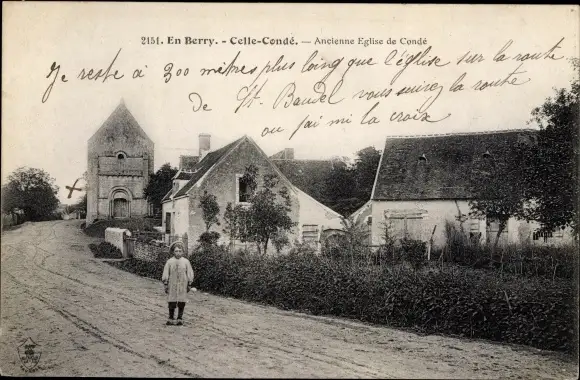 2151. En Berry. - Celle-Condé. — Ancienne Eglise de Condé
Je reste à 300 mètres plus loing que l'église sur la route
de St. Baudel vous suivez la route
ou j'ai mi la croix
x